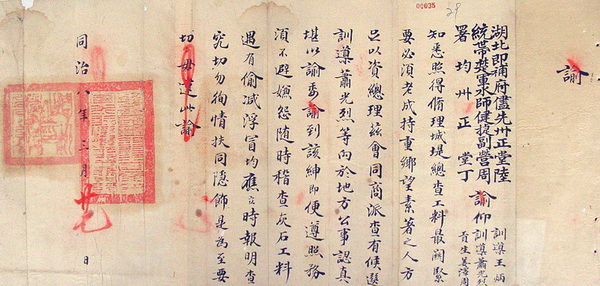 諭
湖北即補府儘先卅正堂陸
統帶襄軍水師健捷副營周
署均州正堂丁
諭仰
訓導王炳
訓導蕭光烈
貢生姜澤周
知悉照得脩理城堤總查工料最關緊
要必須老成持重鄉望素著之人方
足以資總理茲會同商派查有候選
訓導蕭光烈等向於地方公事認真
堪以諭委諭到該紳即便遵照務
須不避嫌怨隨時稽查灰石工料
遇有偷減浮冒均應立時報明查
究切勿徇情扶同隱飾是為至要
切毋違此諭
同治八年二月
日
00035
29